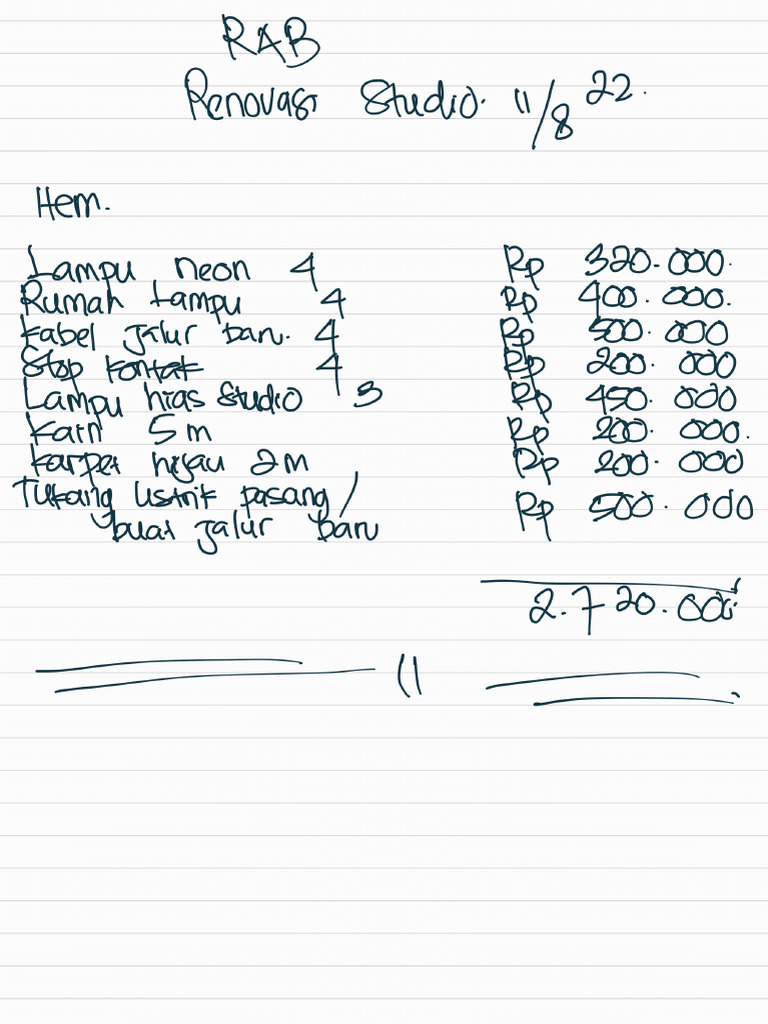 RAB
Renovasi Studio. 11/8 22.
Item.
Lampu neon 4 Rp 320.000.
Rumah Lampu 4 Rp 400.000.
Kabel jalur baru. 4 Rp 500.000
Stop kontak 4 Rp 200.000
Lampu hias Studio 3 Rp 450.000
Kain 5m Rp 200.000.
karpet hijau 2m Rp 200.000
Tukang listrik pasang / Rp 500.000
buat jalur baru
2.720.000